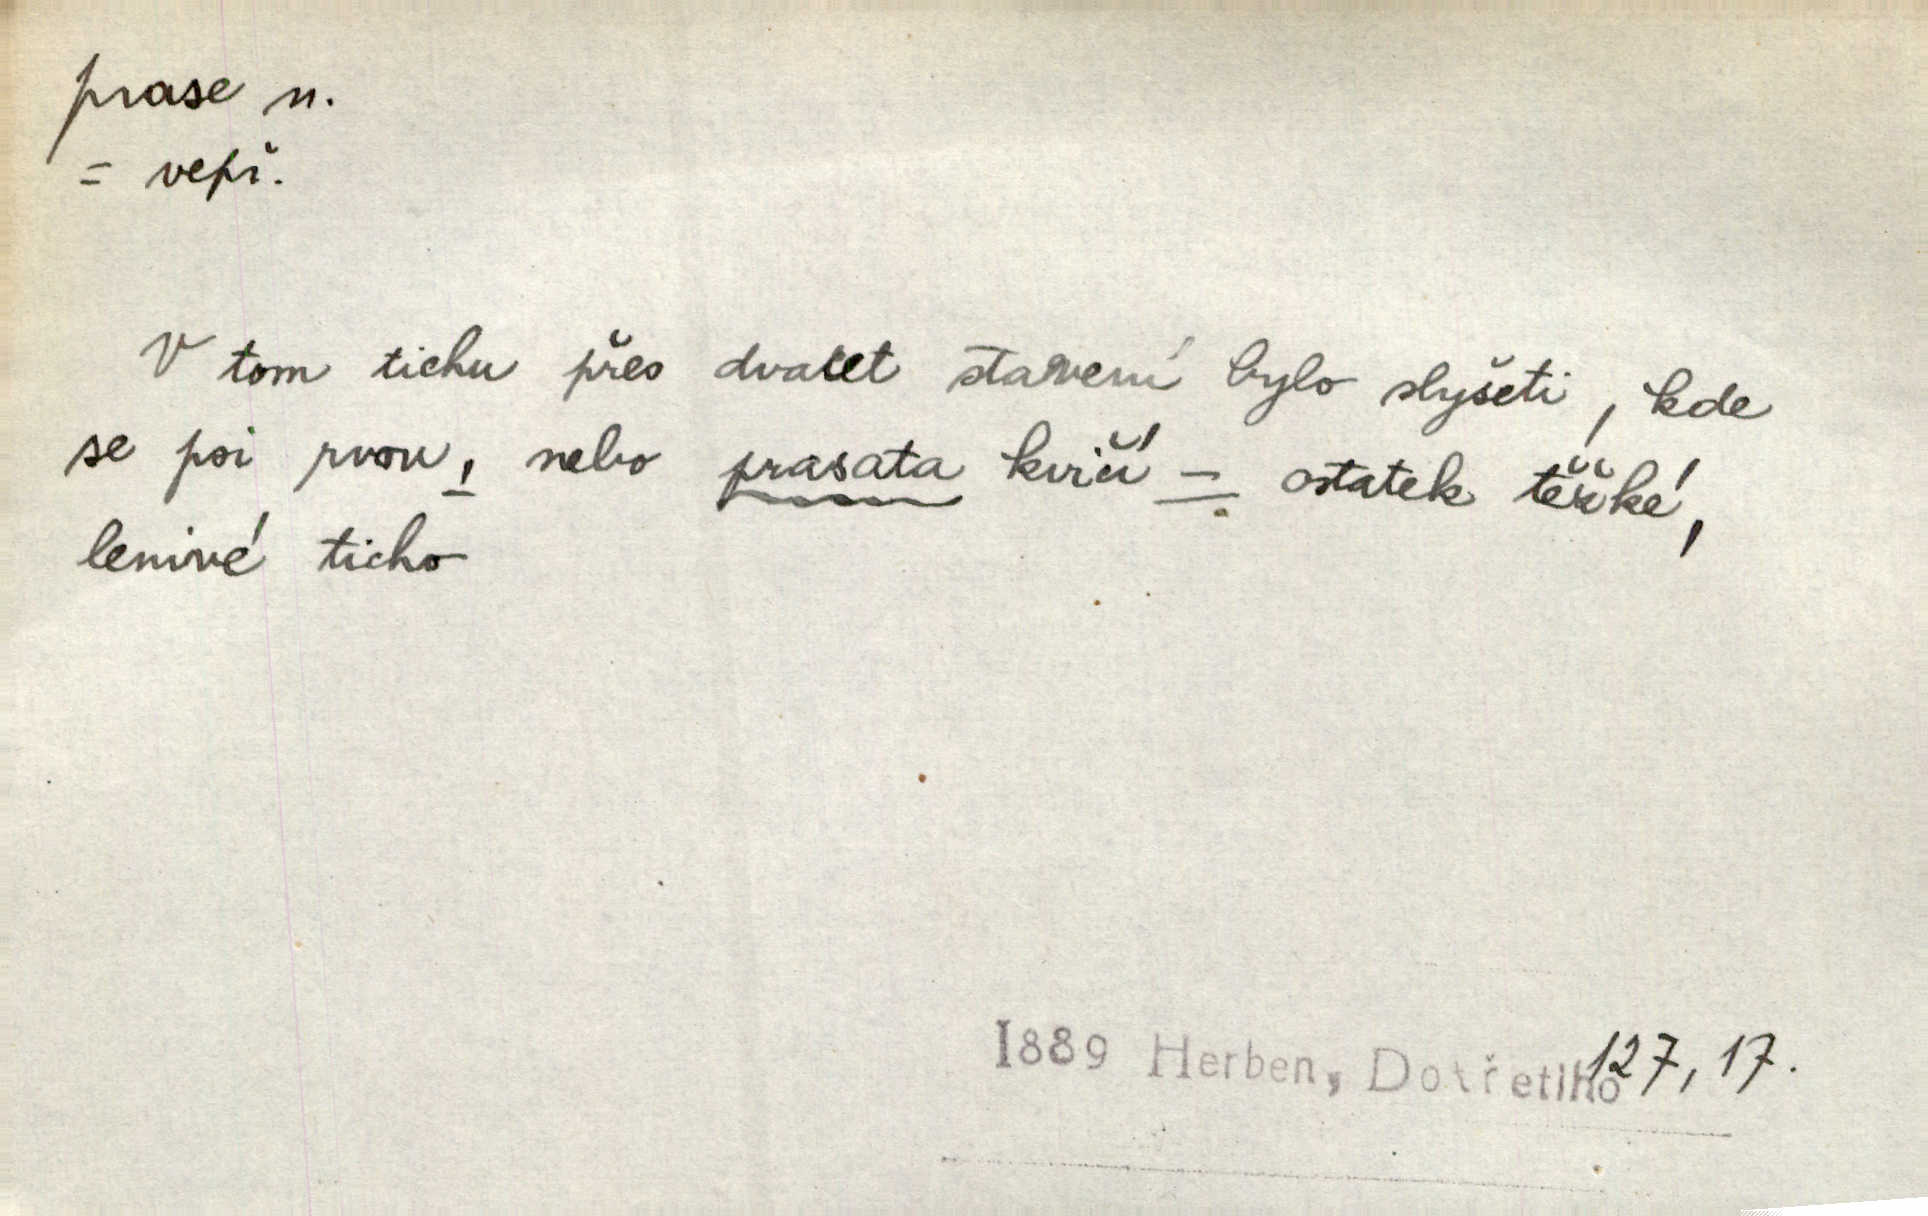 prase n.
= vepř.
V tom tichu přes dvacet stavení bylo slyšeti, kde
se psi rvou, nebo prasata kvičí – ostatek těžké,
lenivé ticho
1889 Herben, Dotřetího 127, 17.